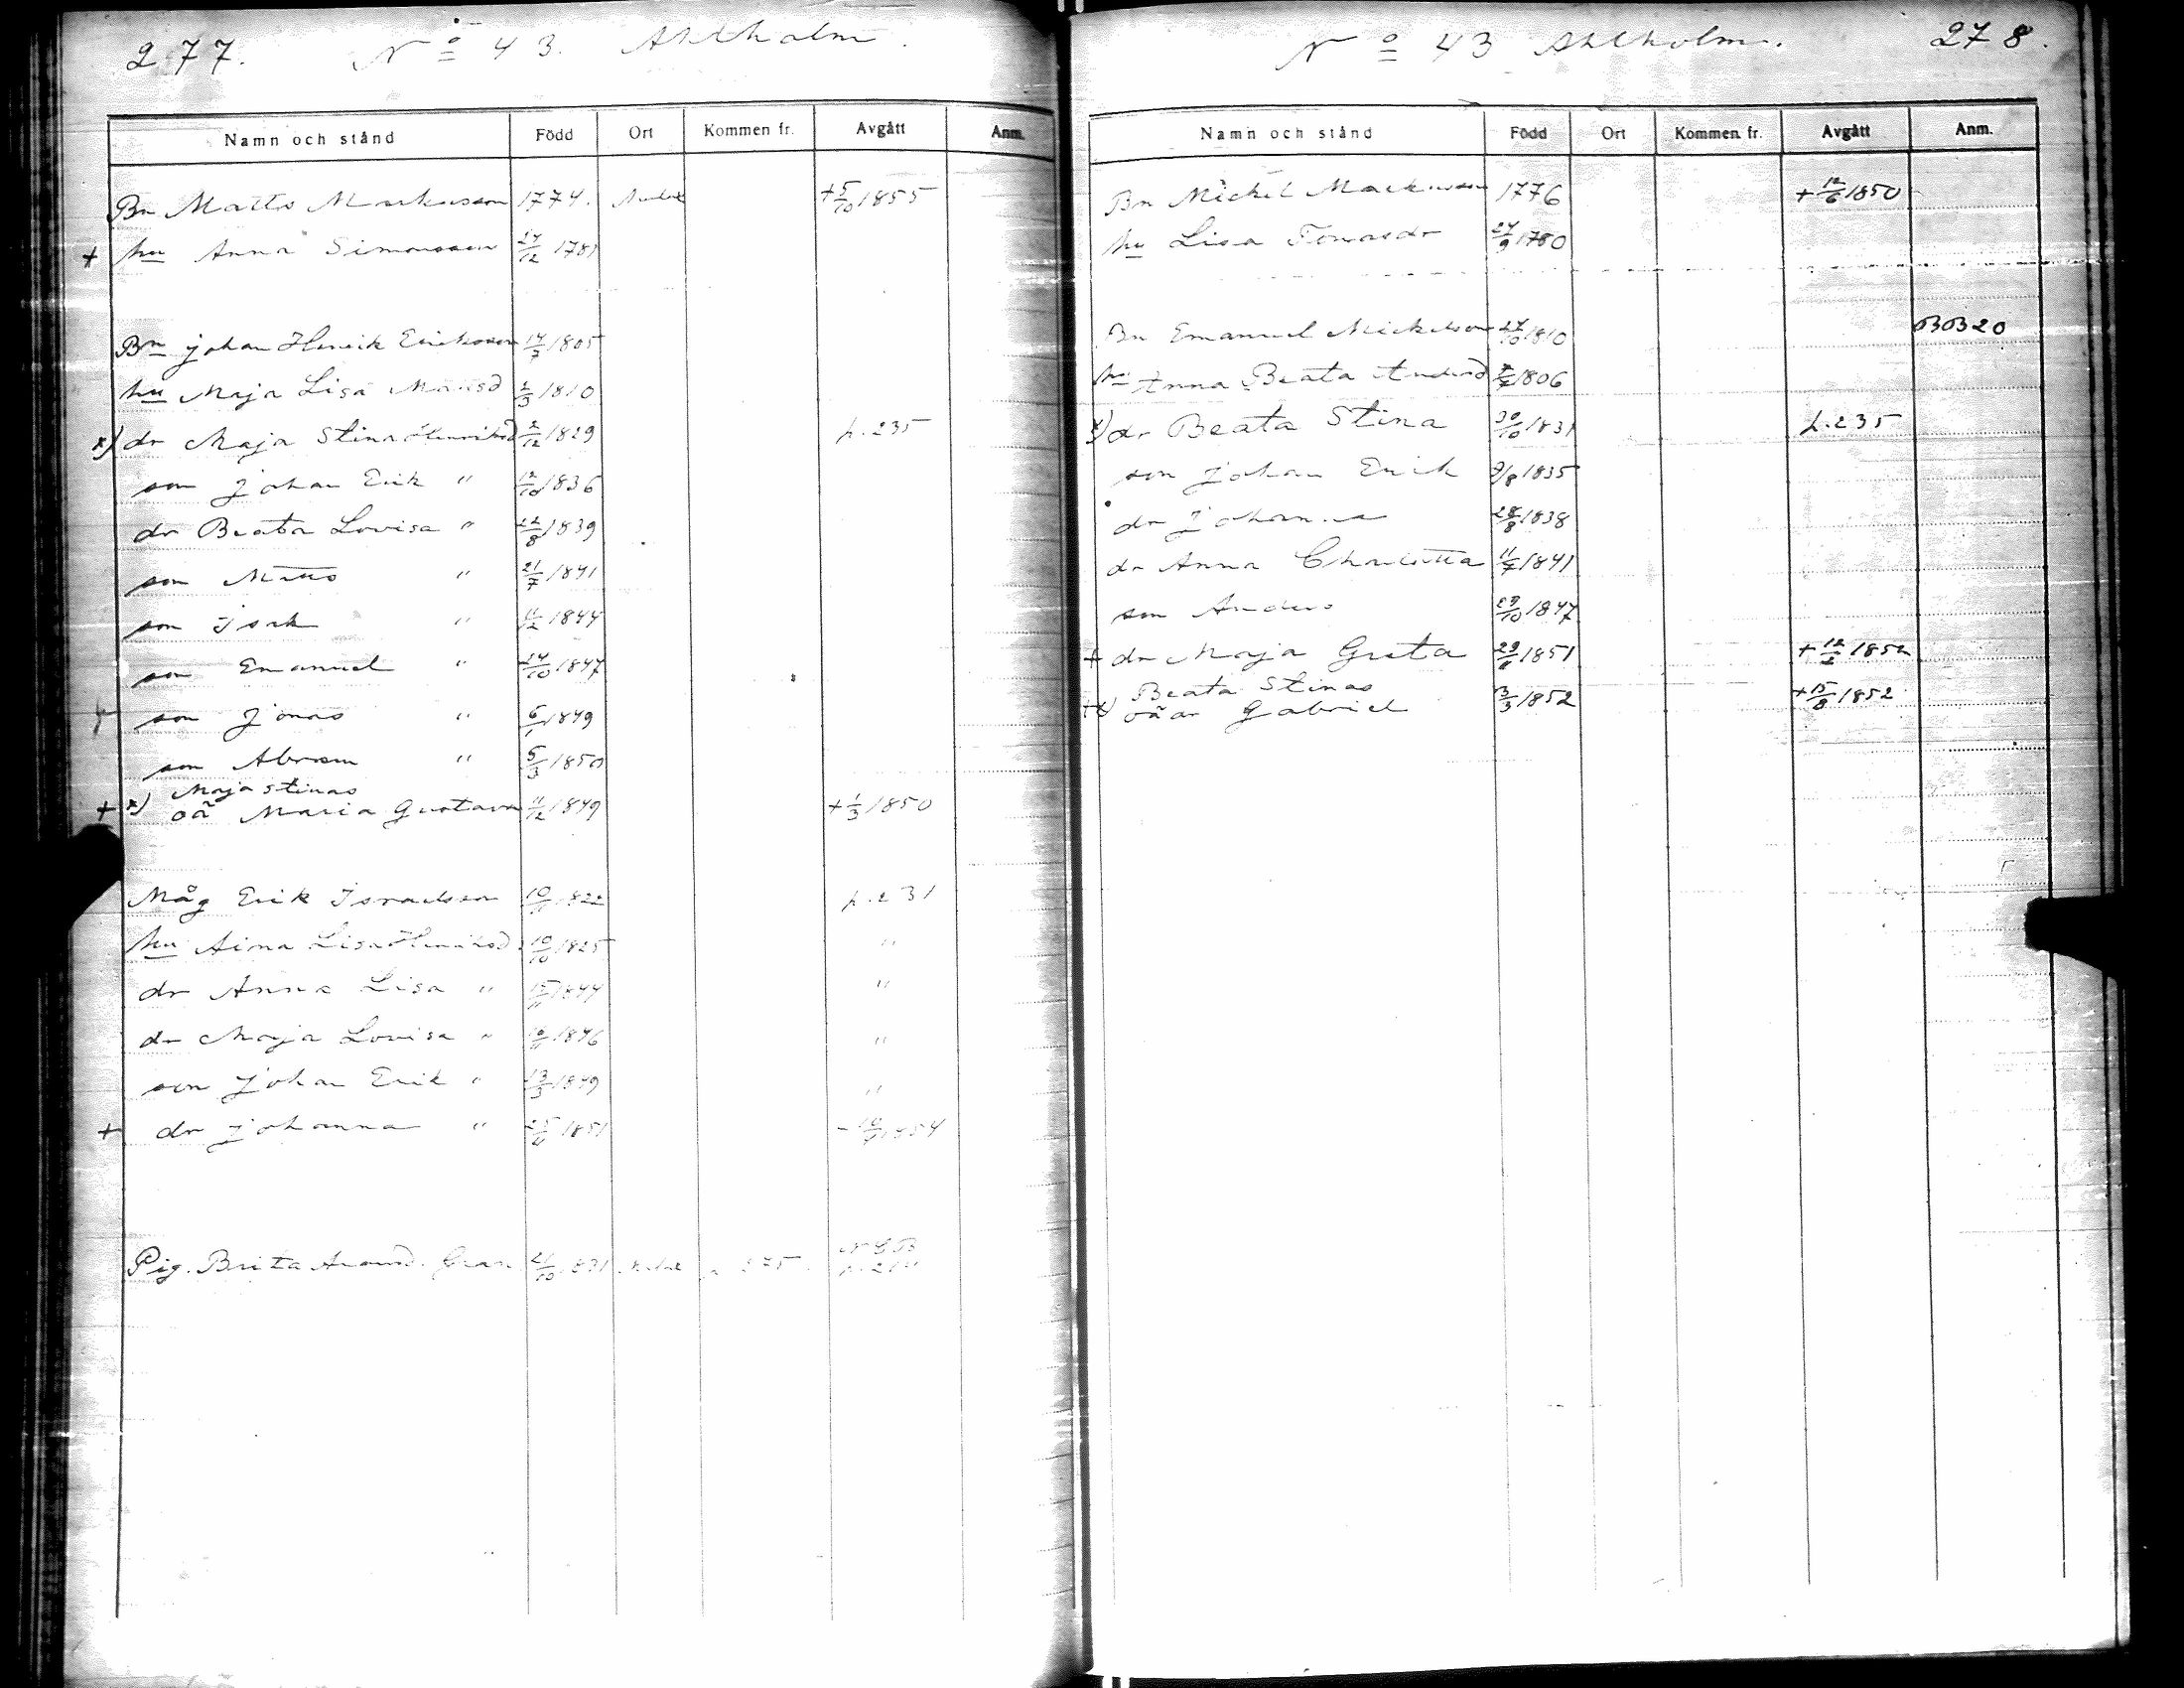 277. No 43. Ahlholm.
Namn och stånd Född Ort Kommen fr. Avgått Anm.
Bn Matts Markusson 1774. +5/10 1855
+ hu Anna Simonsson 24/12 1781
Bn Johan Henrik Eriksson 14/7 1805
hu Maja Lisa Mattsd 2/3 1810
x) dr Maja Stina Henriksd 2/12 1829 p. 235
son Johan Erik " 12/10 1836
dr Beata Lovisa " 22/8 1839
son Matts " 21/7 1841
son Isak " 11/12 1844
son Emanuel " 24/10 1847
son Jonas " 6/1 1849
son Abram " 5/3 1850
Maja Stinas
+ x) oä Maria Gustava 11/12 1849 +1/3 1850
Måg Erik Israelsson 10/11 1822 p. 231
hu Lisa Henriksd 10/10 1825 "
dr Anna Lisa " 1844 "
dr Maja Lovisa " 1846 "
son Johan Erik " 13/3 1849 "
+ dr Johanna " 1851 1854
Pig. Brita 1831
No 43 Ahlholm. 278.
Namn och stånd Född Ort Kommen fr. Avgått Anm.
Bn Mickel Markusson 1776 +12/6 1850
hu Lisa Tomasdr 24/9 1780
Bn Emanuel Mickelsson 27/10 1810 BB20
hu Anna Beata Andersd 1806
x) dr Beata Stina 30/10 1831 p. 235
son Johan Erik 9/8 1835
dr Johanna 28/8 1838
dr Anna Charlotta 1841
son Anders 29/10 1847
+ dr Maja Greta 1851 + 1852
Beata Stinas
+x) oäar Gabriel 1852 +15/8 1852